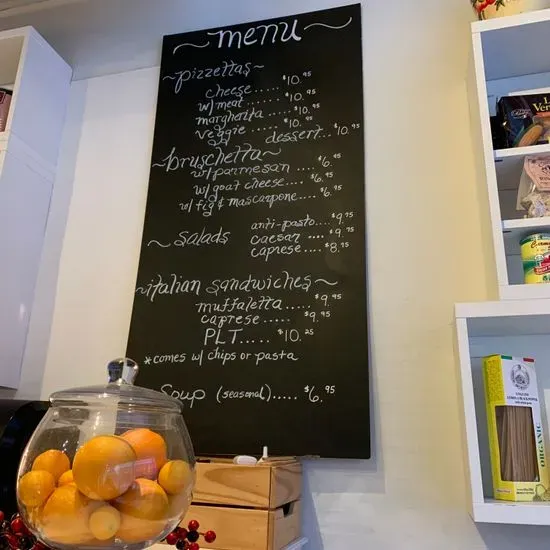 ~menu~
~pizzettas~
cheese...... $10.95
w/ meat..... $10.95
margharita $10.95
veggie .... $10.95
dessert... $10.95
~bruschetta~
w/ parmesan .... $6.95
w/ goat cheese.... $6.95
w/ fig & mascarpone.... $6.95
~ salads
anti-pasto.... $9.75
caesar .... $9.95
caprese .... $8.95
~italian sandwiches~
muffaletta..... $9.95
caprese ..... $9.95
PLT..... $10.25
*comes w/ chips or pasta
Soup (seasonal)..... $6.95
ORGANIC